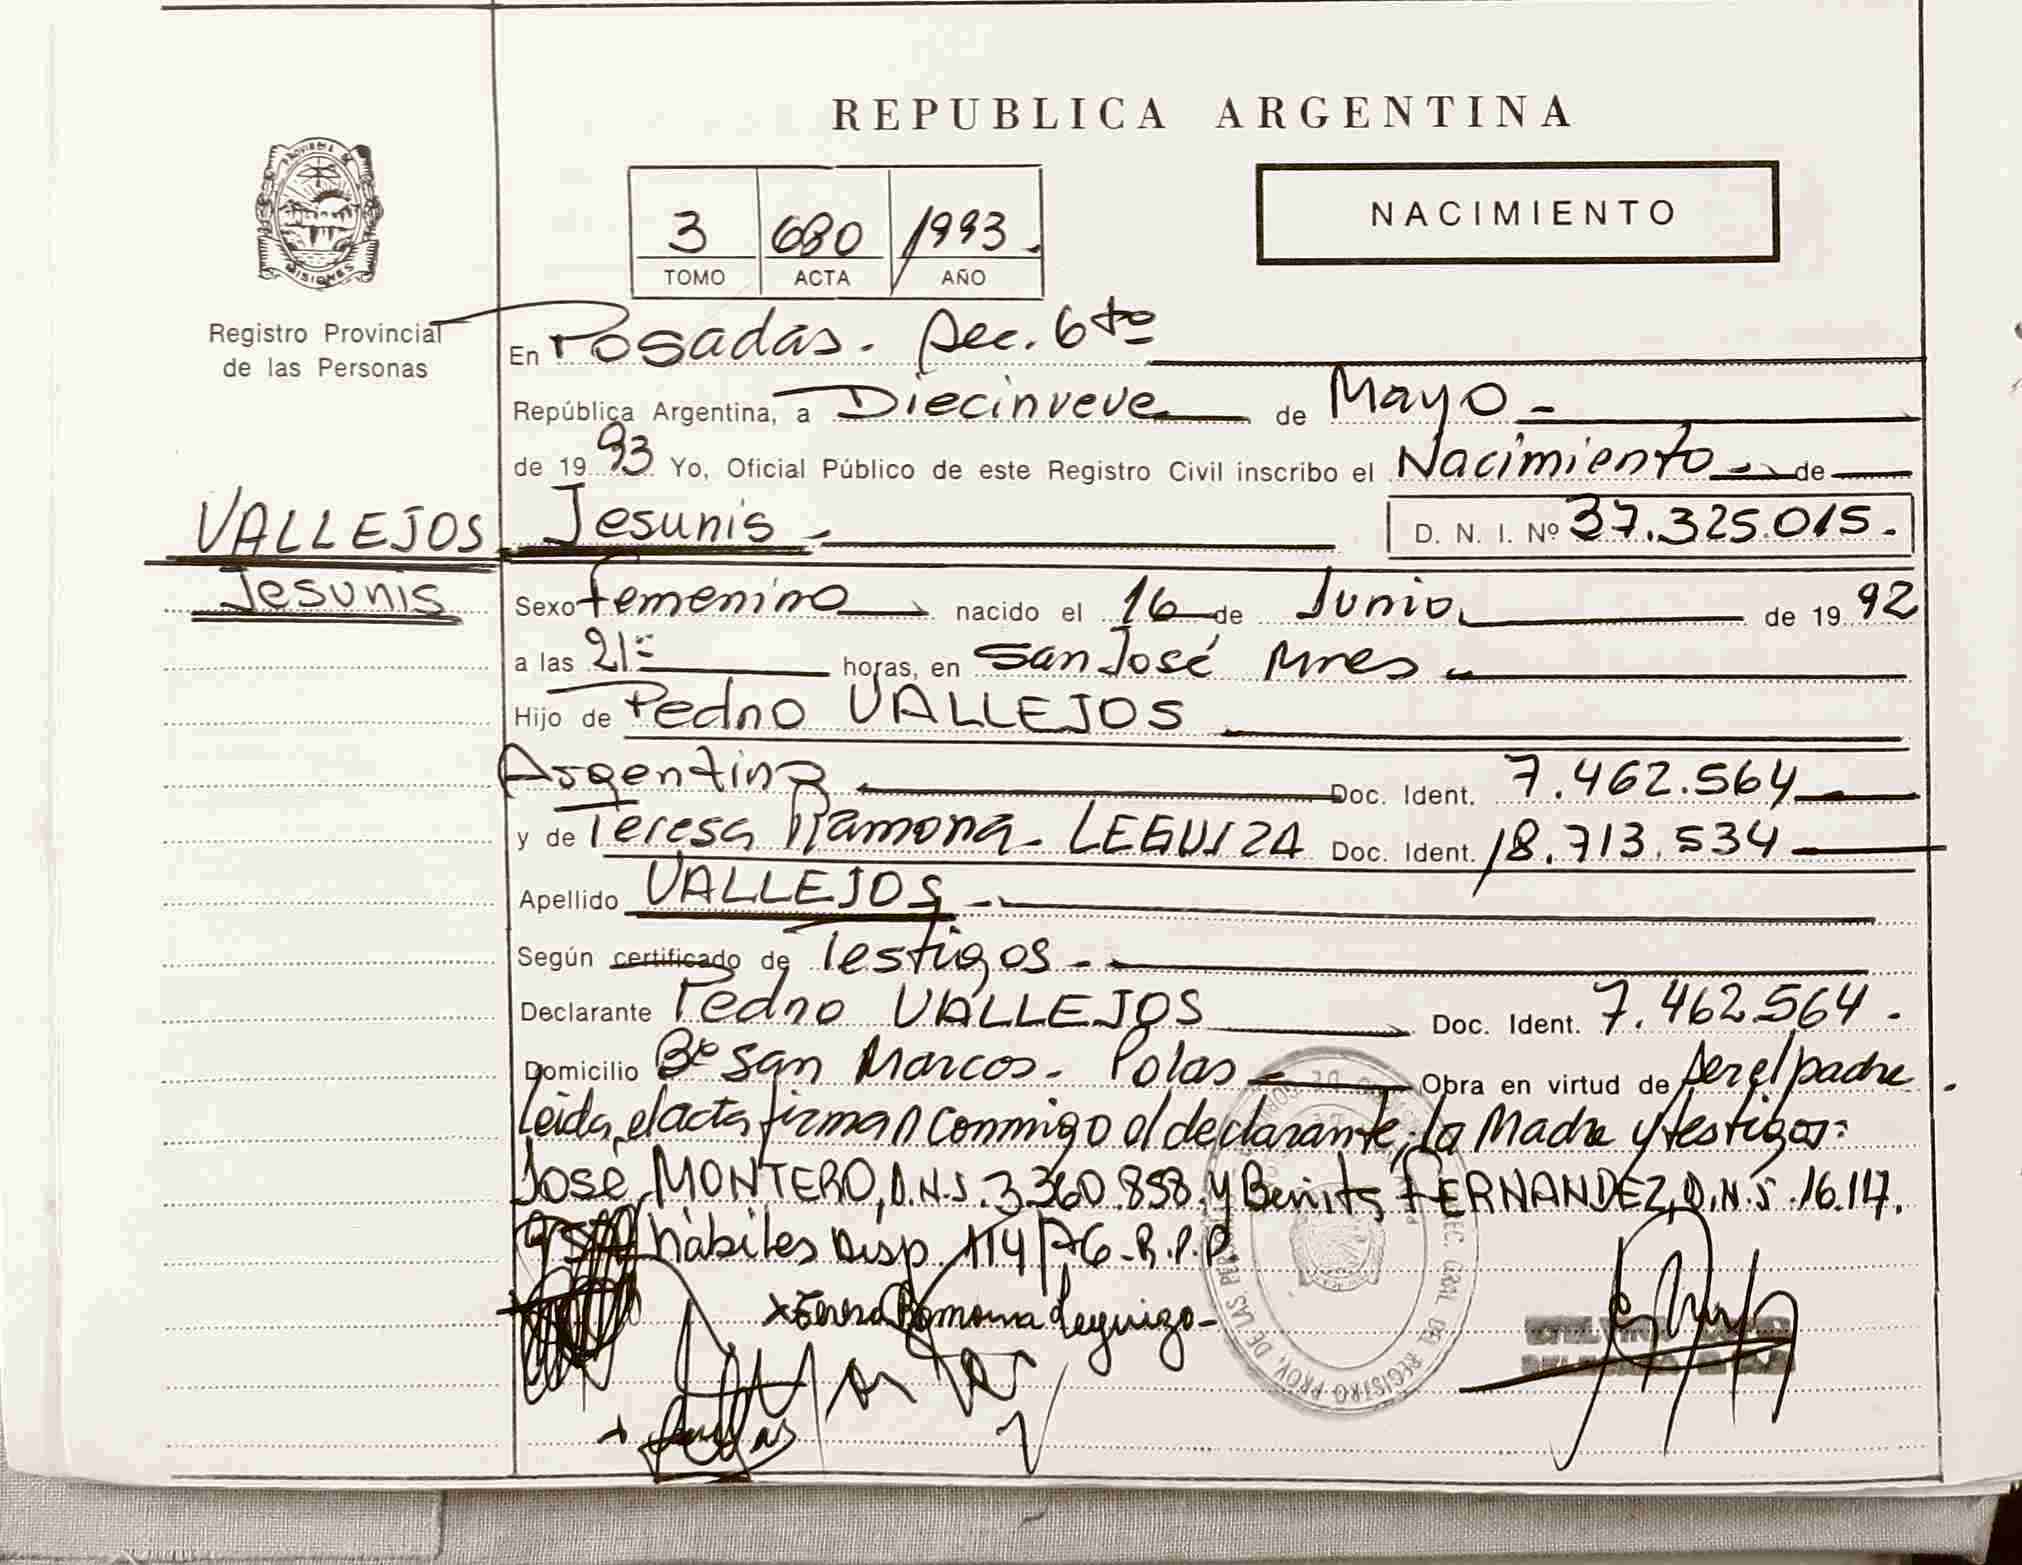 REPUBLICA ARGENTINA
NACIMIENTO
3 680 1993.
TOMO ACTA AÑO
PROVINCIA DE MISIONES
Registro Provincial
de las Personas
En Posadas. Sec. 6to
República Argentina, a Diecinueve de Mayo
de 1993 Yo, Oficial Público de este Registro Civil inscribo el Nacimiento de
VALLEJOS
Jesunis
Jesunis D. N. I. Nº 37.325.015.
Sexo femenino nacido el 16 de Junio, de 1992
a las 21:- horas, en San José Mnes
Hijo de Pedro VALLEJOS
Argentina Doc. Ident. 7.462.564
y de Teresa Ramona LEGUIZA Doc. Ident. 18.713.534
Apellido VALLEJOS
Según certificado de Testigos
Declarante Pedro VALLEJOS Doc. Ident. 7.462.564.
Domicilio Bº San Marcos. Polas Obra en virtud de ser el padre.
Leida el acta firman conmigo el declarante, la Madre y testigos:
José MONTERO, D.N.I. 3.360.858 y Benita FERNANDEZ, D.N.I. 16.117.
hábiles Disp. 114/76-R.P.P.
x Teresa Ramona Leguiza-